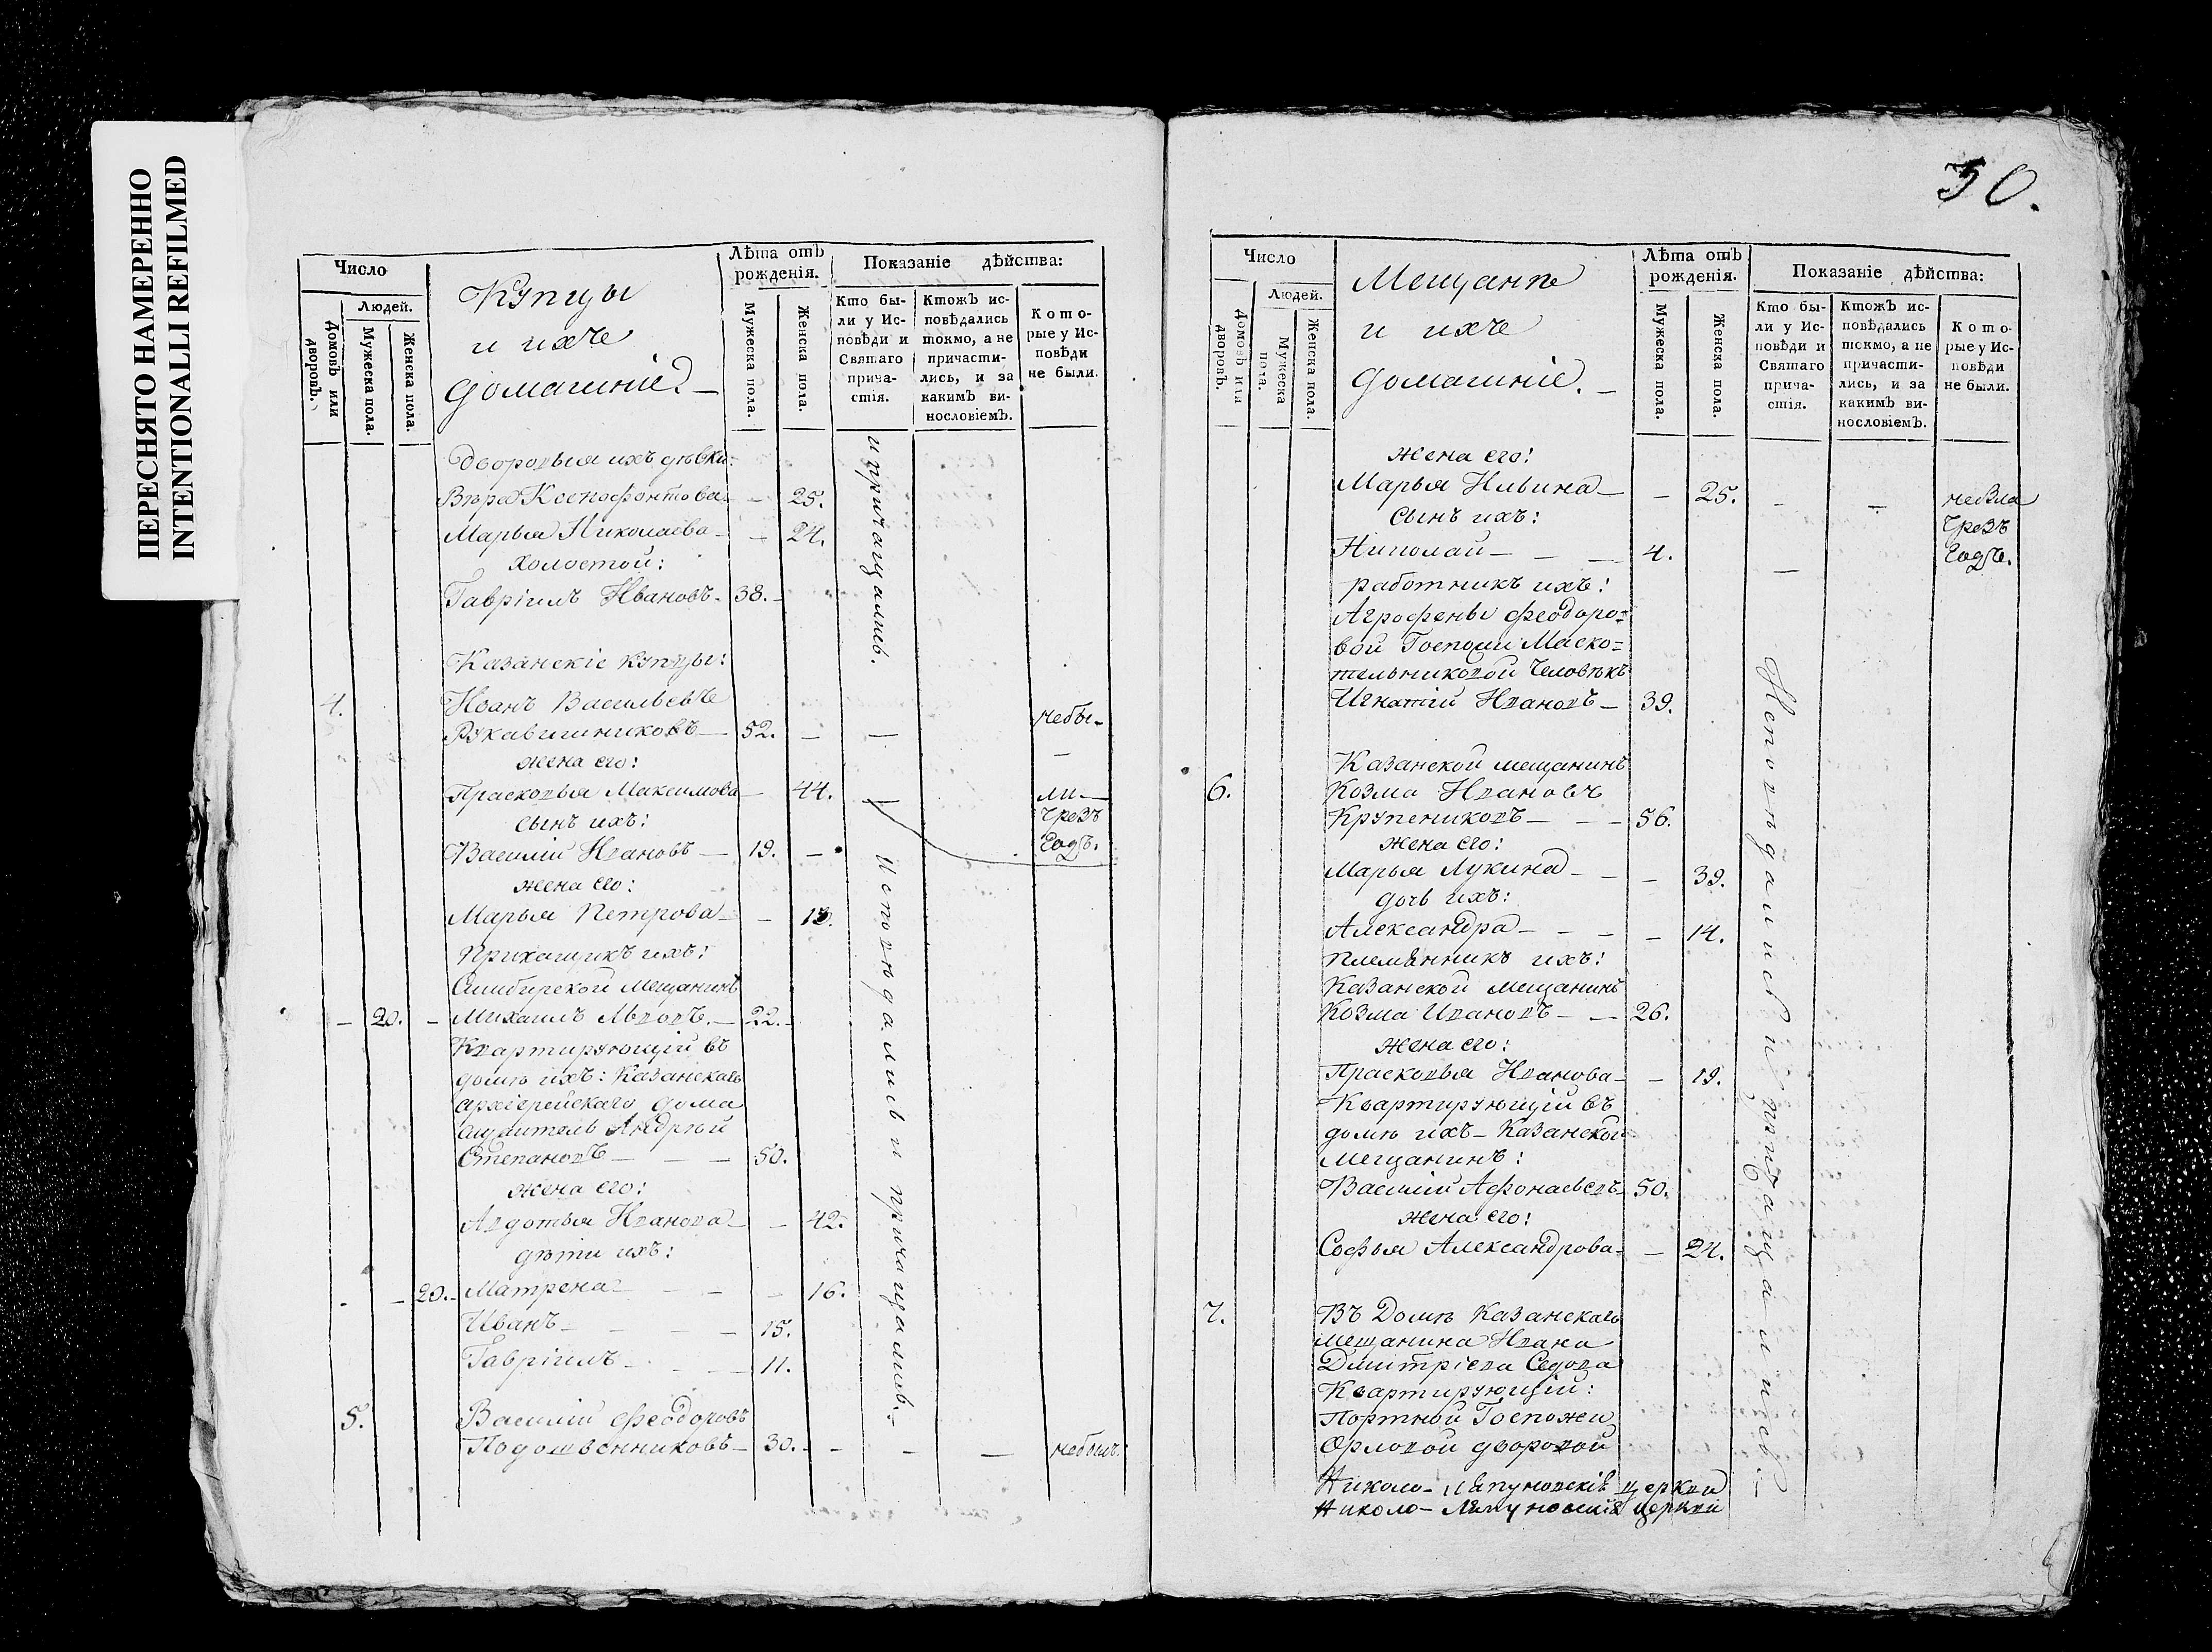 ПЕРЕСНЯТО НАМЕРЕННО
INTENTIONALLI REFILMED
Число
Людей.
Домовъ или дворовъ.
Мужеска пола.
Женска пола.
Купцы
и ихъ
домашніе
Лѣта отъ рожденія.
Мужеска пола.
Женска пола.
Показаніе дѣйства:
Кто бы-
ли у Ис-
повѣди и
Святаго
прича-
стія.
Ктожъ ис-
повѣдались
токмо, а не
причасти-
лись, и за
какимъ ви-
нословіемъ.
Кото-
рые у Ис-
повѣди
не были.
и причащались.
Дворовыя ихъ дѣвки:
Вѣра Ксенофонтова — 25.
Марья Николаева — — 24.
холостой:
Гавріилъ Ивановъ — 38.
Казанскіе купцы:
4. Иванъ Васильевъ
Рукавишниковъ — 52. — — небы-
жена его: —
Прасковья Максимова — 44. ли —
сынъ ихъ: чрезъ
Василій Ивановъ — 19. — годъ.
жена его:
Марья Петрова — — 18.
Прикащикъ ихъ:
Симбирской Мещанинъ
— 20. — Михаилъ Львовъ. — 22. —
Квартирующій въ
домѣ ихъ: Казанскаго
архіерейскаго дома
Андрей
Степановъ — — — 50.
жена его:
Авдотья Иванова — — 42.
дѣти ихъ:
— — 20. — Матрена — — — 16.
Иванъ — — — — 15.
Гавріилъ — — — 11.
Исповѣдались и причащались. —
5. Василій Феодоровъ
Подошвенниковъ — 30. — — — — небылъ.
30.
Число
Людей.
Домовъ или дворовъ.
Мужеска пола.
Женска пола.
Мещане
и ихъ
домашніе. —
Лѣта отъ рожденія.
Мужеска пола.
Женска пола.
Показаніе дѣйства:
Кто бы-
ли у Ис-
повѣди и
Святаго
прича-
стія.
Ктожъ ис-
повѣдались
токмо, а не
причасти-
лись, и за
какимъ ви-
нословіемъ.
Кото-
рые у Ис-
повѣди
не были.
жена его:
Марья Ильина — — 25. — —
сынъ ихъ: чрезъ
Николай — — — 4. — годъ.
работникъ ихъ:
Агрофены Феодоро=
вой Госпожи Маско=
тельниковой Человѣкъ
Игнатій Ивановъ — 39.
Казанской мещанинъ
6. Козма Ивановъ
Крупениковъ — — — 56.
жена его:
Марья Лукина — — — 39.
дочь ихъ:
Александра — — — — 14.
племянникъ ихъ:
Казанской мещанинъ
Козма Ивановъ — — 26.
жена его:
Прасковья Иванова — — 19.
Квартирующій въ
домѣ ихъ — Казанской
Мещанинъ:
Василій Афонасьевъ — 50.
жена его:
Софья Александрова — — 24.
7. Въ Домѣ Казанскаго
мещанина Ивана
Дмитріева Седова
Квартирующій:
Портной Госпожи
Орловой дворовой
Исповѣдались и причащались. —
Николо-Ляпуновскія церкви
Николо-Ляпуновскія церкви